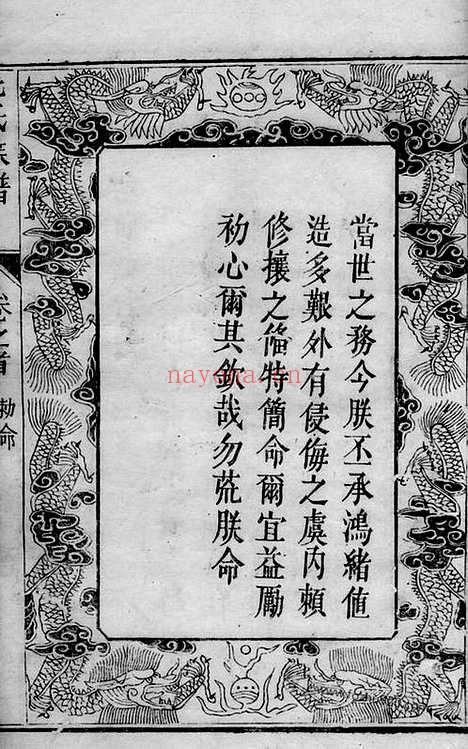 當世之務今朕丕承鴻緒值
造多艱外有侵侮之虞丙頼
修攘之俻特簡命爾宜益勵
初心爾其欽哉勿荒朕命
氏族譜
卷之首
勅命
nayona.cn